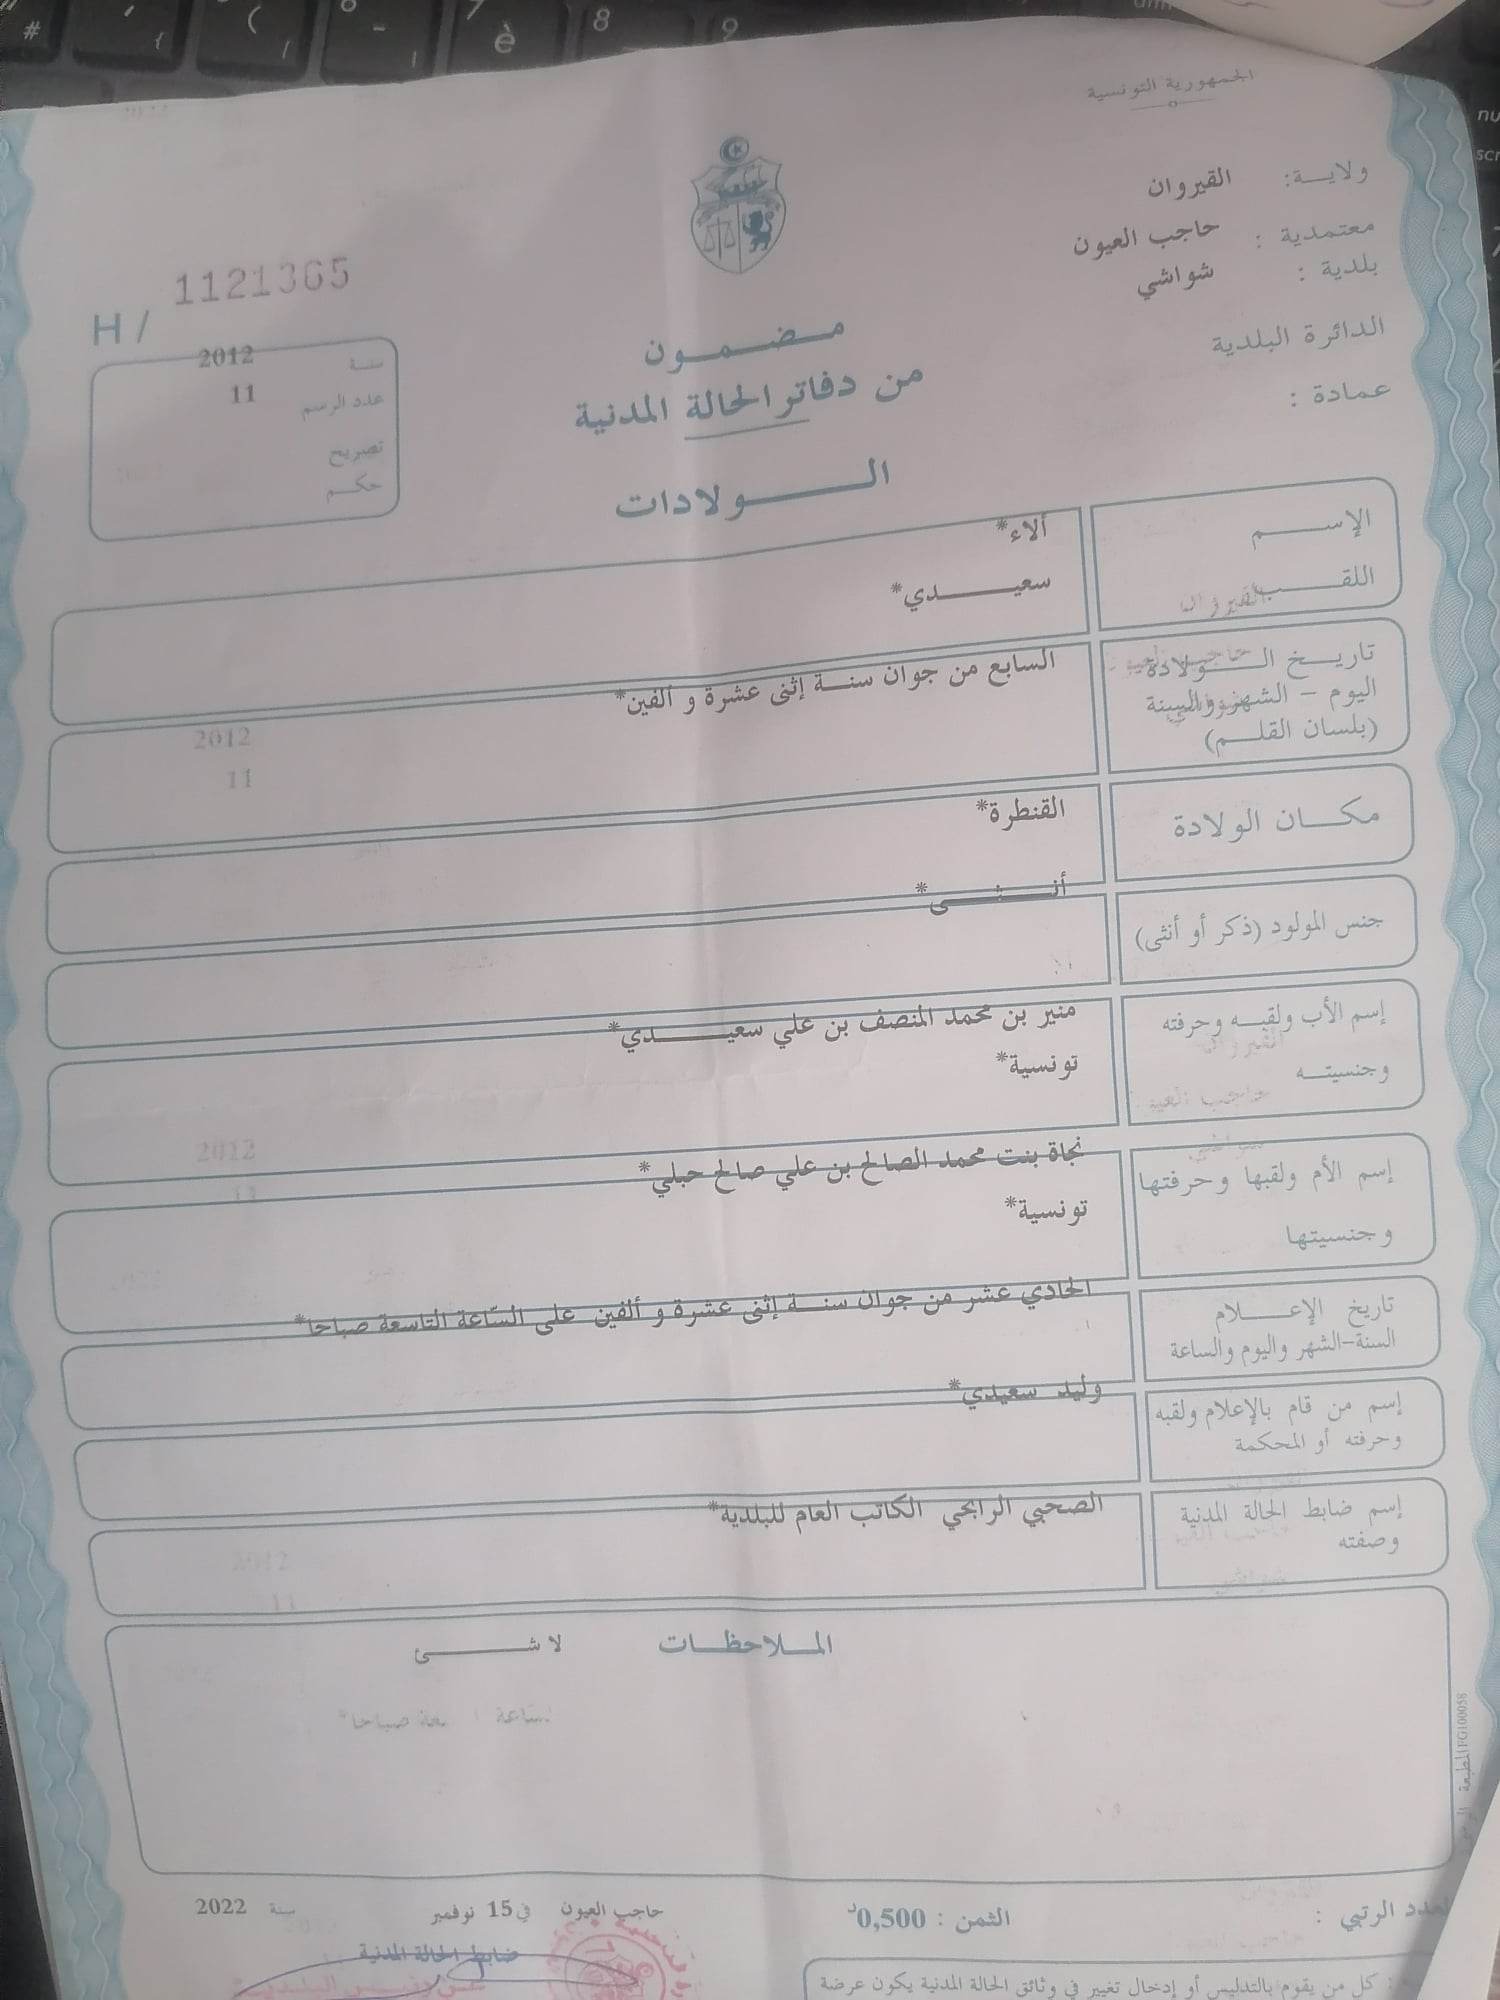 الجمهورية التونسية
ولايــة: القيروان
معتمدية : حاجب العيون
بلدية : شواشي
الدائرة البلدية
عمادة :
H / 1121365
سنة 2012
عدد الرسم 11
تصريح
حكم
مضمون
من دفاتر الحالة المدنية
الـولادات
الإسـم ألاء*
اللقـب سعيـدي*
تاريـخ الـولادة السابع من جوان سنـة إثنى عشرة و ألفين*
اليوم – الشهر والسنة
(بلسان القلـم)
مكـان الولادة القنطرة*
جنس المولود (ذكر أو أنثى) أنـثـى*
إسم الأب ولقبـه وحرفته منير بن محمد المنصف بن علي سعيـدي*
وجنسيتـه تونسية*
إسم الأم ولقبها وحرفتها نجاة بنت محمد الصالح بن علي صالح حبلي*
وجنسيتها تونسية*
تاريخ الإعـلام الحادي عشر من جوان سنـة إثنى عشرة و ألفين على السّاعة التاسعة صباحا*
السنة-الشهر واليوم والساعة
إسم من قام بالإعلام ولقبه وليد سعيدي*
وحرفته أو المحكمة
إسم ضابط الحالة المدنية الصحبي الرابحي الكاتب العام للبلدية*
وصفته
المـلاحظـات لا شـئ
العدد الرتبي :
الثمن : 0,500د
حاجب العيون في 15 نوفمبر سنة 2022
ضابط الحالة المدنية
كل من يقوم بالتدليس أو إدخال تغيير في وثائق الحالة المدنية يكون عرضة